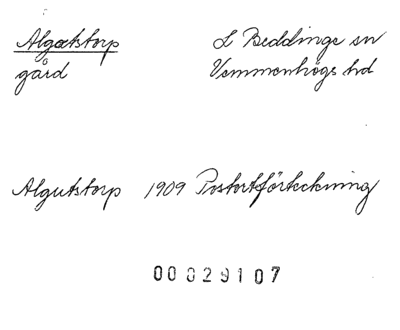 Algutstorp L Beddinge sn
gård Vemmenhögs hd
Algutstorp 1909 Postortförteckning
00829107